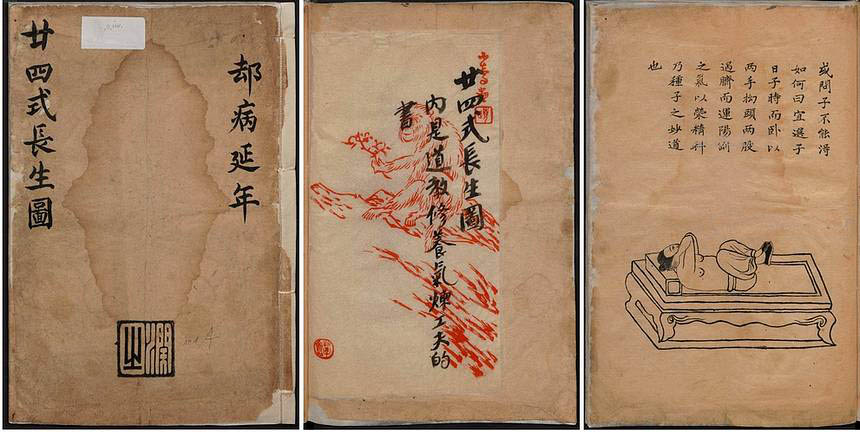 却病延年
廿四式長生圖
廿四式長生圖
内是道教修養氣煉工夫的
書
或問子不能得
如何曰宜選子
日子時而卧以
两手抅頭两股
過臍而運陽剛
之氣以榮精科
乃種子之妙道
也